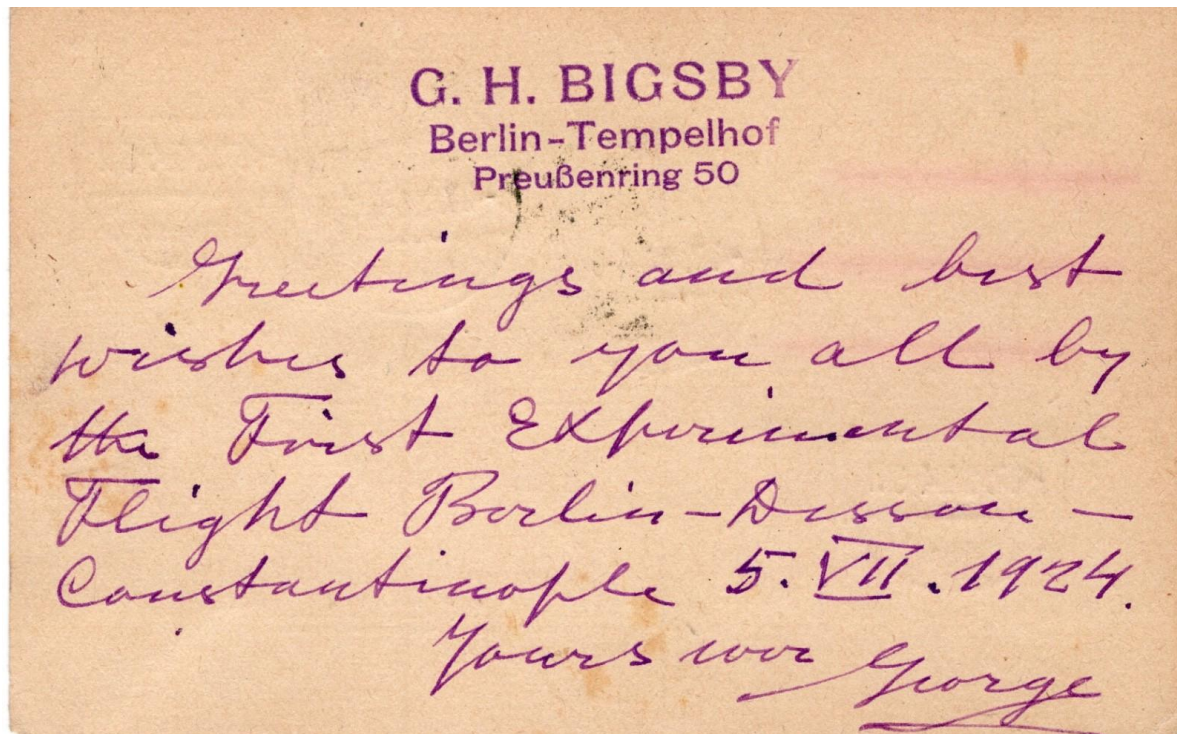 G. H. BIGSBY
Berlin-Tempelhof
Preußenring 50
Greetings and best
wishes to you all by
the First Experimental
Flight Berlin-Dessau-
Constantinople 5.VII.1924.
Yours ever George